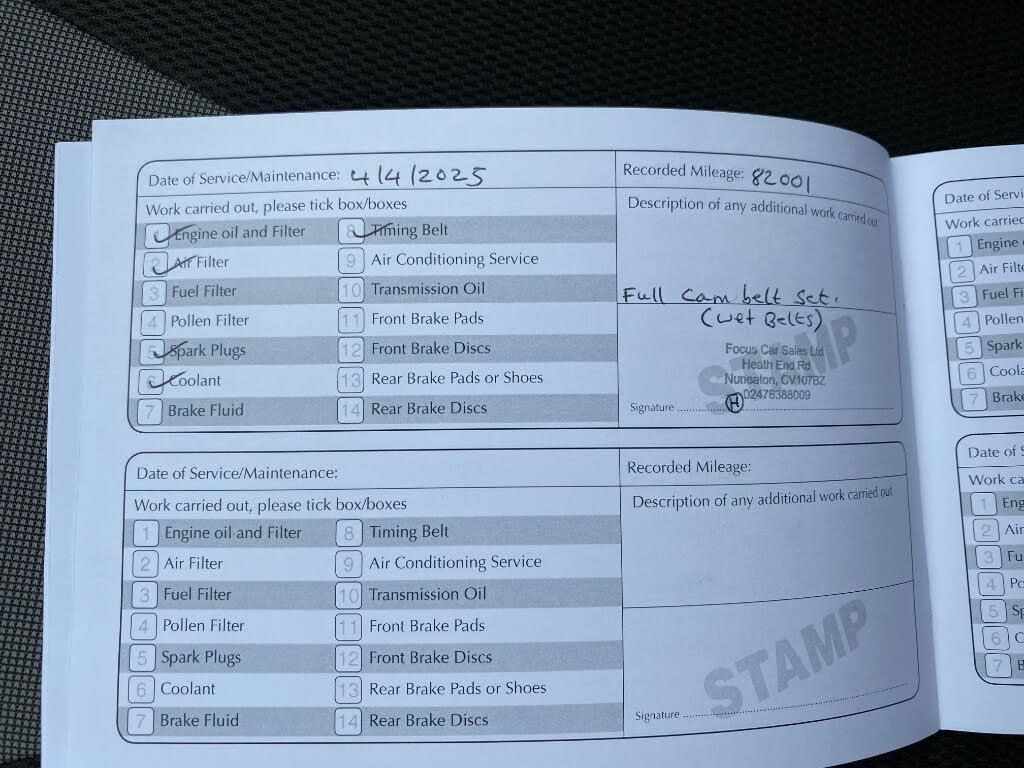 Date of Service/Maintenance: 4/4/2025
Recorded Mileage: 82001
Work carried out, please tick box/boxes
Description of any additional work carried out
1 Engine oil and Filter
8 Timing Belt
2 Air Filter
9 Air Conditioning Service
3 Fuel Filter
10 Transmission Oil
4 Pollen Filter
11 Front Brake Pads
5 Spark Plugs
12 Front Brake Discs
6 Coolant
13 Rear Brake Pads or Shoes
7 Brake Fluid
14 Rear Brake Discs
Full cam belt set.
(wet Belts)
STAMP
Focus Car Sales Ltd
Heath End Rd
Nuneaton, CV107BZ
02476388009
Signature H
Date of Service/Maintenance:
Recorded Mileage:
Work carried out, please tick box/boxes
Description of any additional work carried out
1 Engine oil and Filter
8 Timing Belt
2 Air Filter
9 Air Conditioning Service
3 Fuel Filter
10 Transmission Oil
4 Pollen Filter
11 Front Brake Pads
5 Spark Plugs
12 Front Brake Discs
6 Coolant
13 Rear Brake Pads or Shoes
7 Brake Fluid
14 Rear Brake Discs
STAMP
Signature
Date of Servi
Work carried
1 Engine
2 Air Filt
3 Fuel Fi
4 Pollen
5 Spark
6 Coola
7 Brake
Date of S
Work ca
1 Eng
2 Air
3 Fu
4 Po
5 Sp
6 C
7 B